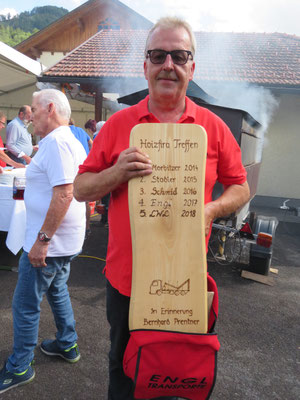 Holzfira Treffen
1. Morbitzer 2014
2. Stabler 2015
3. Schmid 2016
4. Engl 2017
5. LWL 2018
In Erinnerung
Bernhard Prentner
ENGL
TRANSPORTE